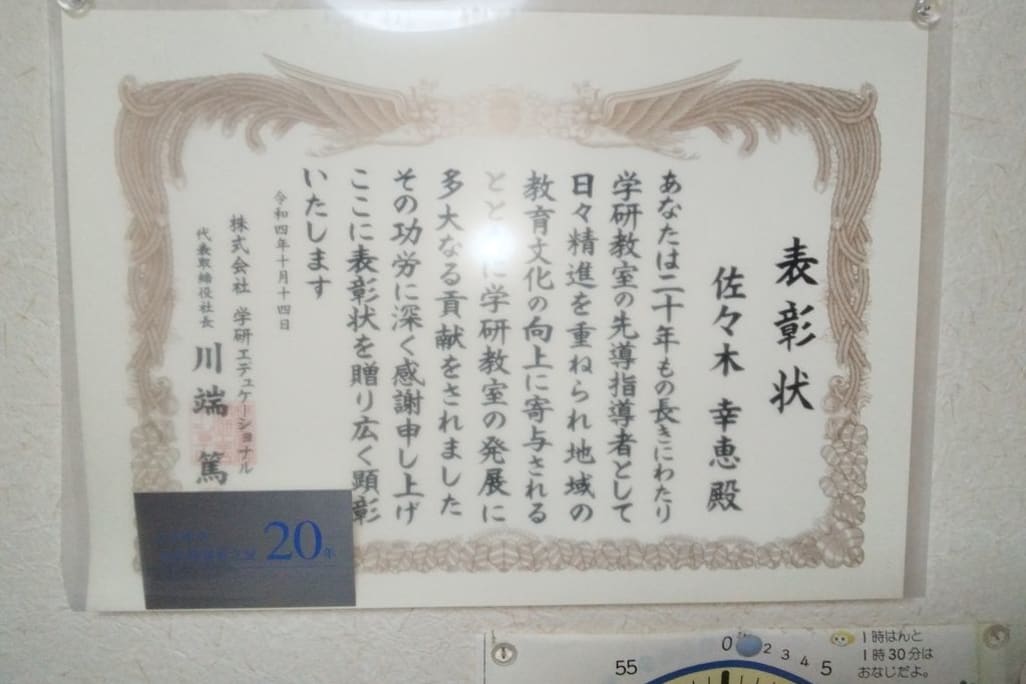 表彰状
佐々木 幸恵 殿
あなたは二十年もの長きにわたり
学研教室の先導指導者として
日々精進を重ねられ地域の
教育文化の向上に寄与される
とともに学研教室の発展に
多大なる貢献をされました
その功労に深く感謝申し上げ
ここに表彰状を贈り広く顕彰
いたします
令和四年十月十四日
株式会社 学研エデュケーショナル
代表取締役社長 川端 篤
20年
55 0 2 3 4 5
1時はんと
1時30分は
おなじだよ。